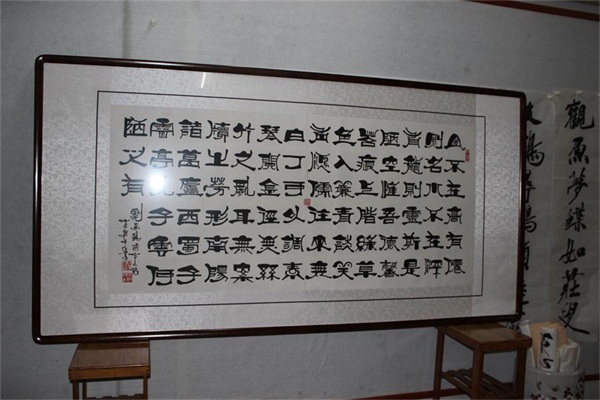 觀魚夢蝶如莊叟
山不在高有僊
則名水不在深
有龍則靈斯是
陋室惟吾德馨
苔痕上階綠草
色入簾青談笑
有鴻儒往來無
白丁可以調素
琴閱金經無絲
竹之亂耳無案
牘之勞形南陽
諸葛廬西蜀子
雲亭孔子雲何
陋之有